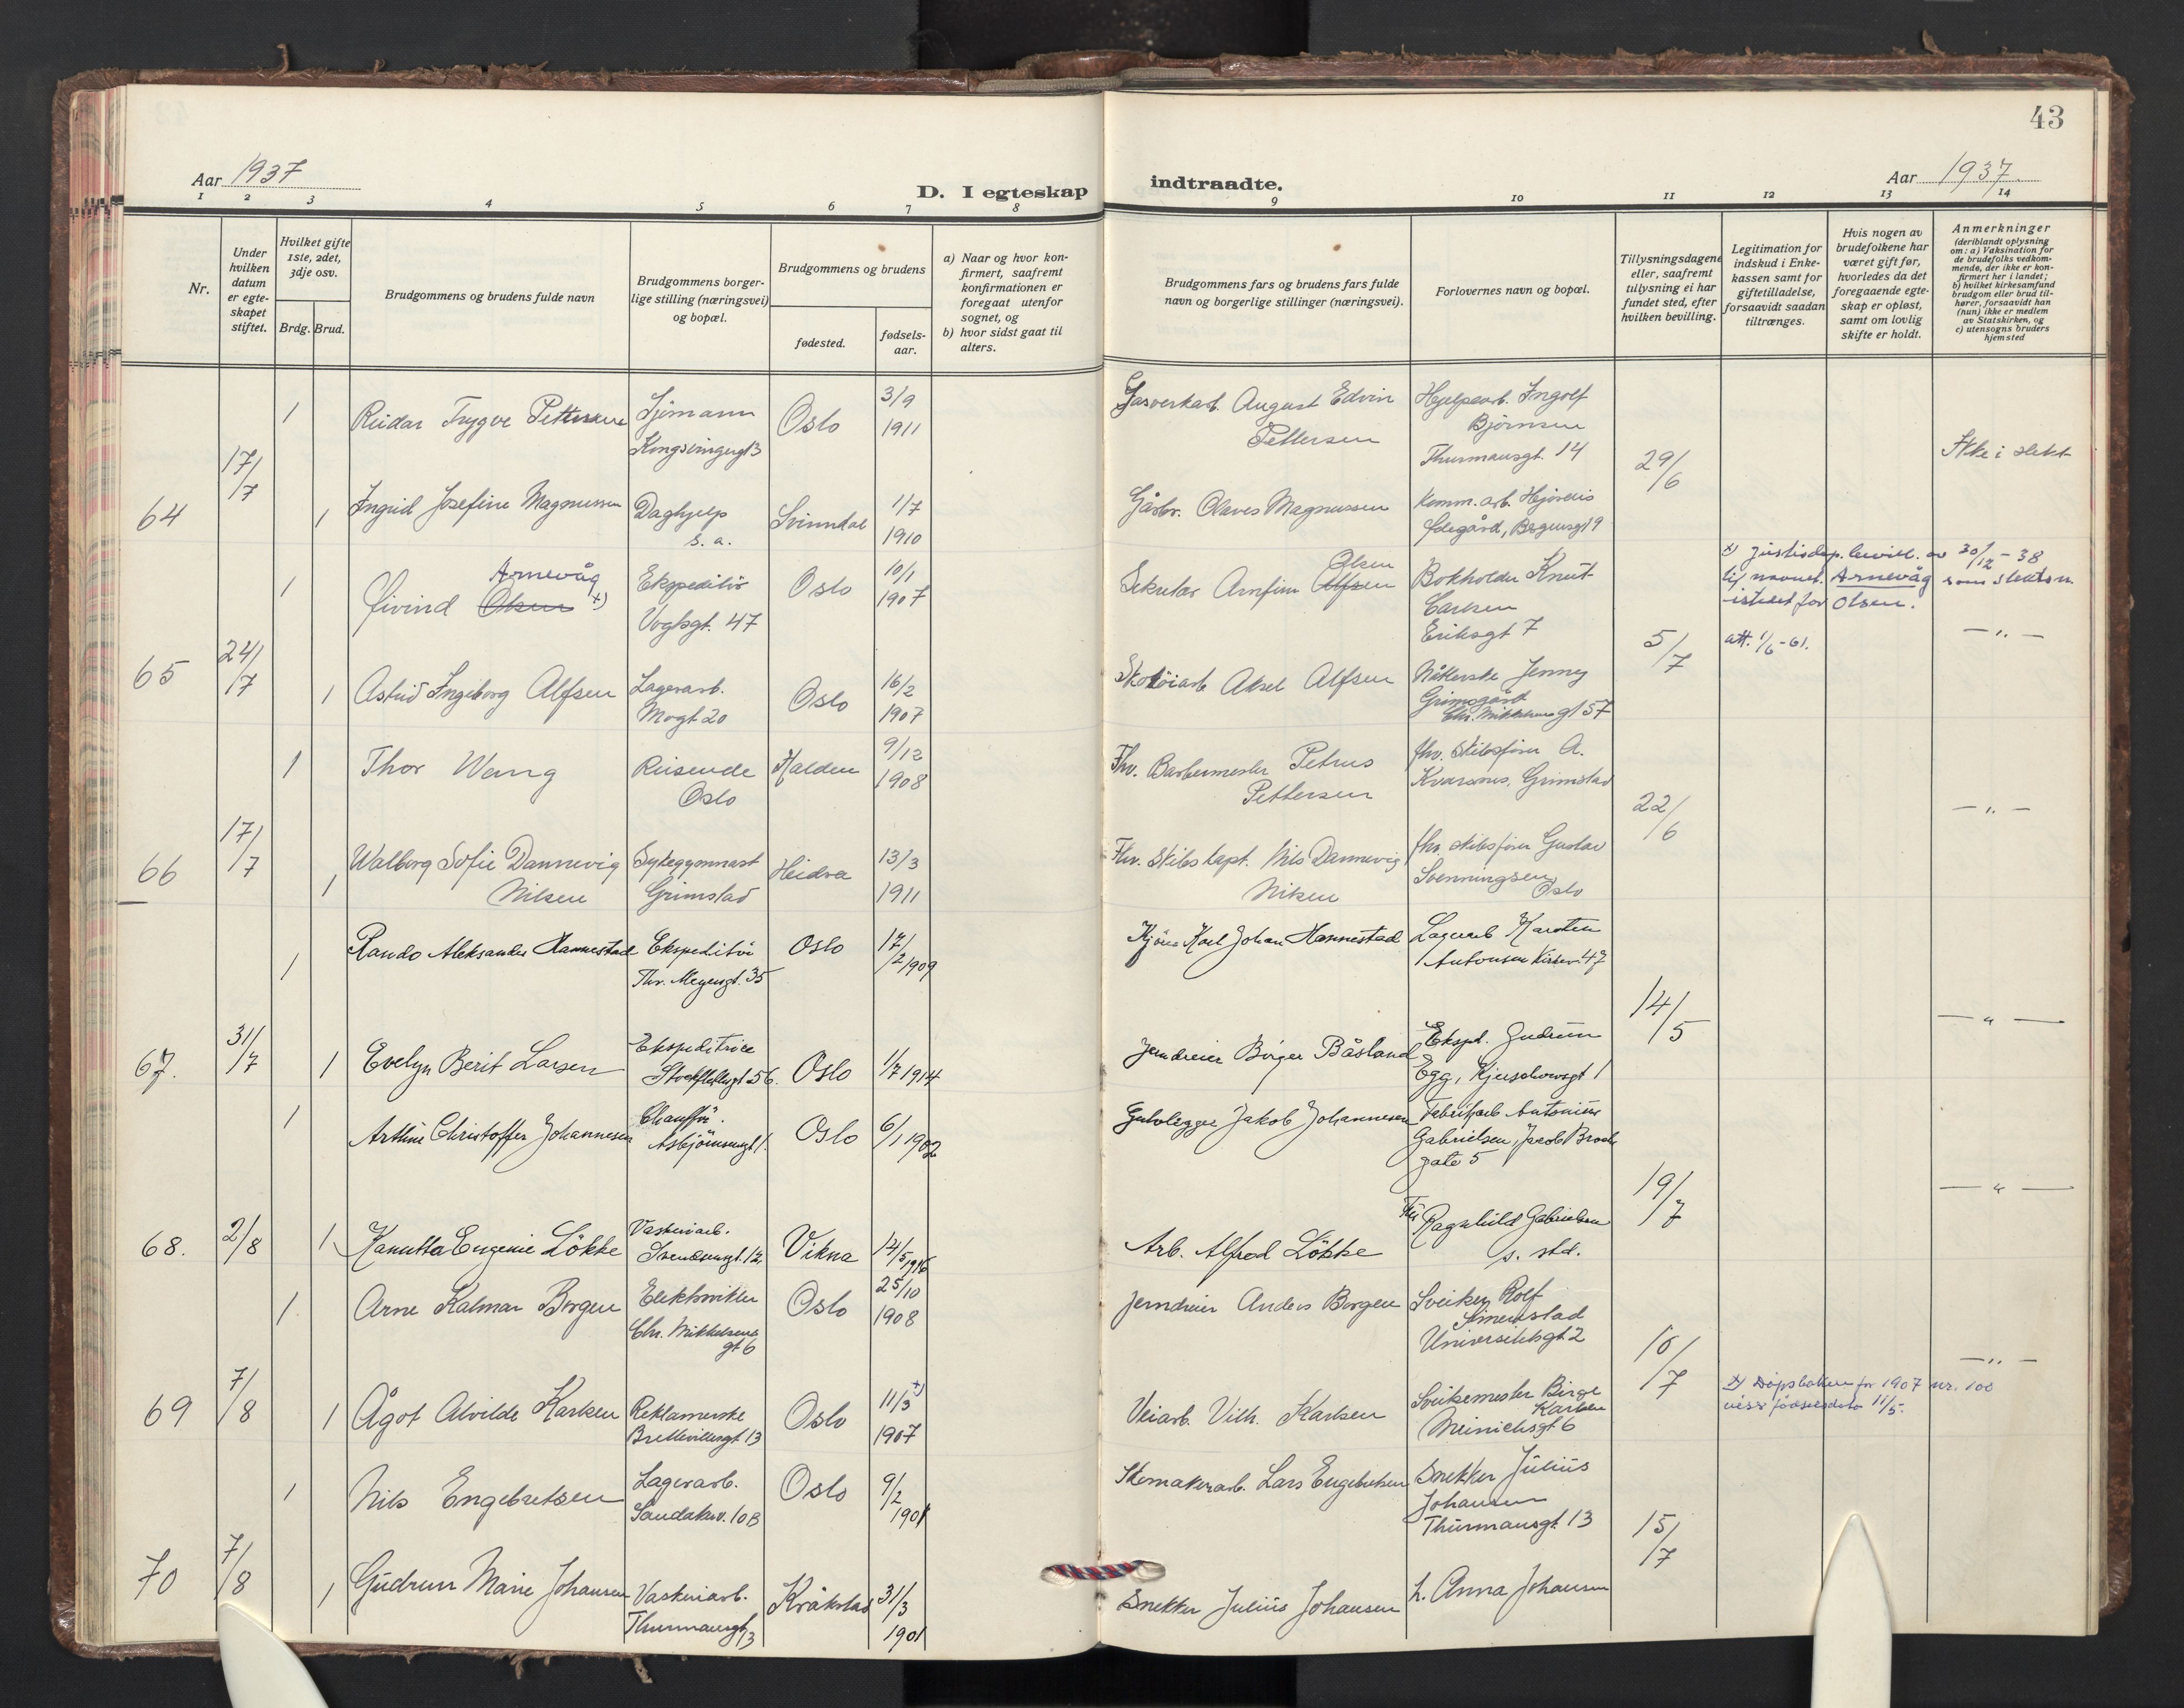 43
Aar 1937
D. I egteskap
indtraadte.
Aar 1937.
1 2 3 4 5 6 7 8 9 10 11 12 13 14
Nr.
Under hvilken datum er egte-skapet stiftet.
Hvilket gifte 1ste, 2det, 3dje osv.
Brdg. Brud.
Brudgommens og brudens fulde navn
Brudgommens borger-lige stilling (næringsvei) og bopæl.
Brudgommens og brudens
fødested.
fødsels-aar.
a) Naar og hvor kon-firmert, saafremt konfirmationen er foregaat utenfor sognet, og
b) hvor sidst gaat til alters.
Brudgommens fars og brudens fars fulde navn og borgerlige stillinger (næringsvei).
Forlovernes navn og bopæl.
Tillysningsdagene eller, saafremt tillysning ei har fundet sted, efter hvilken bevilling.
Legitimation for indskud i Enke-kassen samt for giftetilladelse, forsaavidt saadan tiltrænges.
Hvis nogen av brudefolkene har været gift før, hvorledes da det foregaaende egte-skap er opløst, samt om lovlig skifte er holdt.
Anmerkninger
(deriblandt oplysning om: a) Vaksination for de brudefolks vedkom-mende, der ikke er kon-firmert her i landet; b) hvilket kirkesamfund brudgom eller brud til-hører, forsaavidt han (hun) ikke er medlem av Statskirken, og c) utensogns bruders hjemsted
64 17/7
1 Reidar Trygve Pettersen Sjømann Kongsvingergt 3 Oslo 3/9 1911
Gasverkarb. August Edvin Pettersen
Hjelpearb. Ingolf Bjørnsen Thurmannsgt. 14
29/6
Ikke i slekt
1 Ingrid Josefine Magnussen Daghjelp s. a. Svinndal 1/7 1910
Gårbr. Olaves Magnussen
Komm. arb. Hjørdis Ødegård, Bergensgt 9
65 24/7
1 Øivind Olsen Arnevåg x) Ekspeditør Vogtsgt. 47 Oslo 10/1 1907
Sekretær Arnfinn Alfsen Olsen
Bokholder Knut Carlsen Eriksgt 7
5/7
x) Justisdep. bevill. av 30/12 - 38
til navnet Arnevåg som slektsn.
istedet for Olsen.
att. 1/6-61.
— " —
1 Astrid Ingeborg Alfsen Lagerarb. Mogt 20 Oslo 16/2 1907
Skotöiarb Aksel Alfsen
Nåtlerske Jenny Grimsgård Chr. Mikkelsensgt 57
66 17/7
1 Thor Wang Reisende Oslo Halden 9/12 1908
Fhv. Barbermester Petrus Pettersen
fhv. skibsfører A. Kvarsnes, Grimstad
22/6
— " —
1 Walborg Sofie Dannevig Nilsen Sykegymnast Grimstad Heidra 13/3 1911
Fhv. skibskapt. Nils Dannevig Nilsen
fhv. skibsfører Gustav Svenningsen Oslo
67. 31/7
1 Rando Aleksander Hannestad Ekspeditör Thv. Meyersgt. 35 Oslo 17/2 1909
Kjörer Karl Johan Hannestad
Lagerarb Karsten Antonsen Kirkev. 47
14/5
— " —
1 Evelyn Berit Larsen Ekspeditrice Stockfletsgt 56. Oslo 1/7 1914
Jerndreier Birger Båsland
Ekspd. Gudrun Egg, Kjerschowsgt 1
68. 2/8
1 Arthur Christoffer Johannesen Chauffør. Asbjörnsensgt 1. Oslo 6/1 1902
Gulvlegger Jakob Johannesen
Fabrikarb Antonius Gabrielsen, Jacob Brochs gate 5
19/7
— " —
1 Kanutta Eugenie Lökke Vaskeriarb. Svendsensgt. 12, Vikna 14/5 1916
Arb. Alfred Lökke
Fru Ragnhild Gabrielsen s. std.
69 7/8
1. Arne Kalmar Borgen Elektriker Chr. Mikkelsens gt 6 Oslo 25/10 1908
Jerndreier Anders Borgen
Sveiker Rolf Simenstad Universitetsgt 2
16/7
— " —
1 Ågot Alvilde Karlsen Reklamerske Brettevillesgt 13 Oslo 11/3 x) 1907
Veiarb. Vilh. Karlsen
Sveisemester Birger Karlsen Meinichsgt 6
x) Döpsboken for 1907 nr. 100
viser födselsdato 11/5.
70 7/8
1 Nils Engebretsen Lagerarb. Sandakerv. 10B Oslo 9/2 1901
Skomakerarb. Lars Engebretsen
Snekker Julius Johansen Thurmansgt. 13
15/7
1 Gudrun Marie Johansen Vaskeriarb. Thurmansgt 13 Kråkstad 31/3 1901
Snekker Julius Johansen
h. Anna Johansen